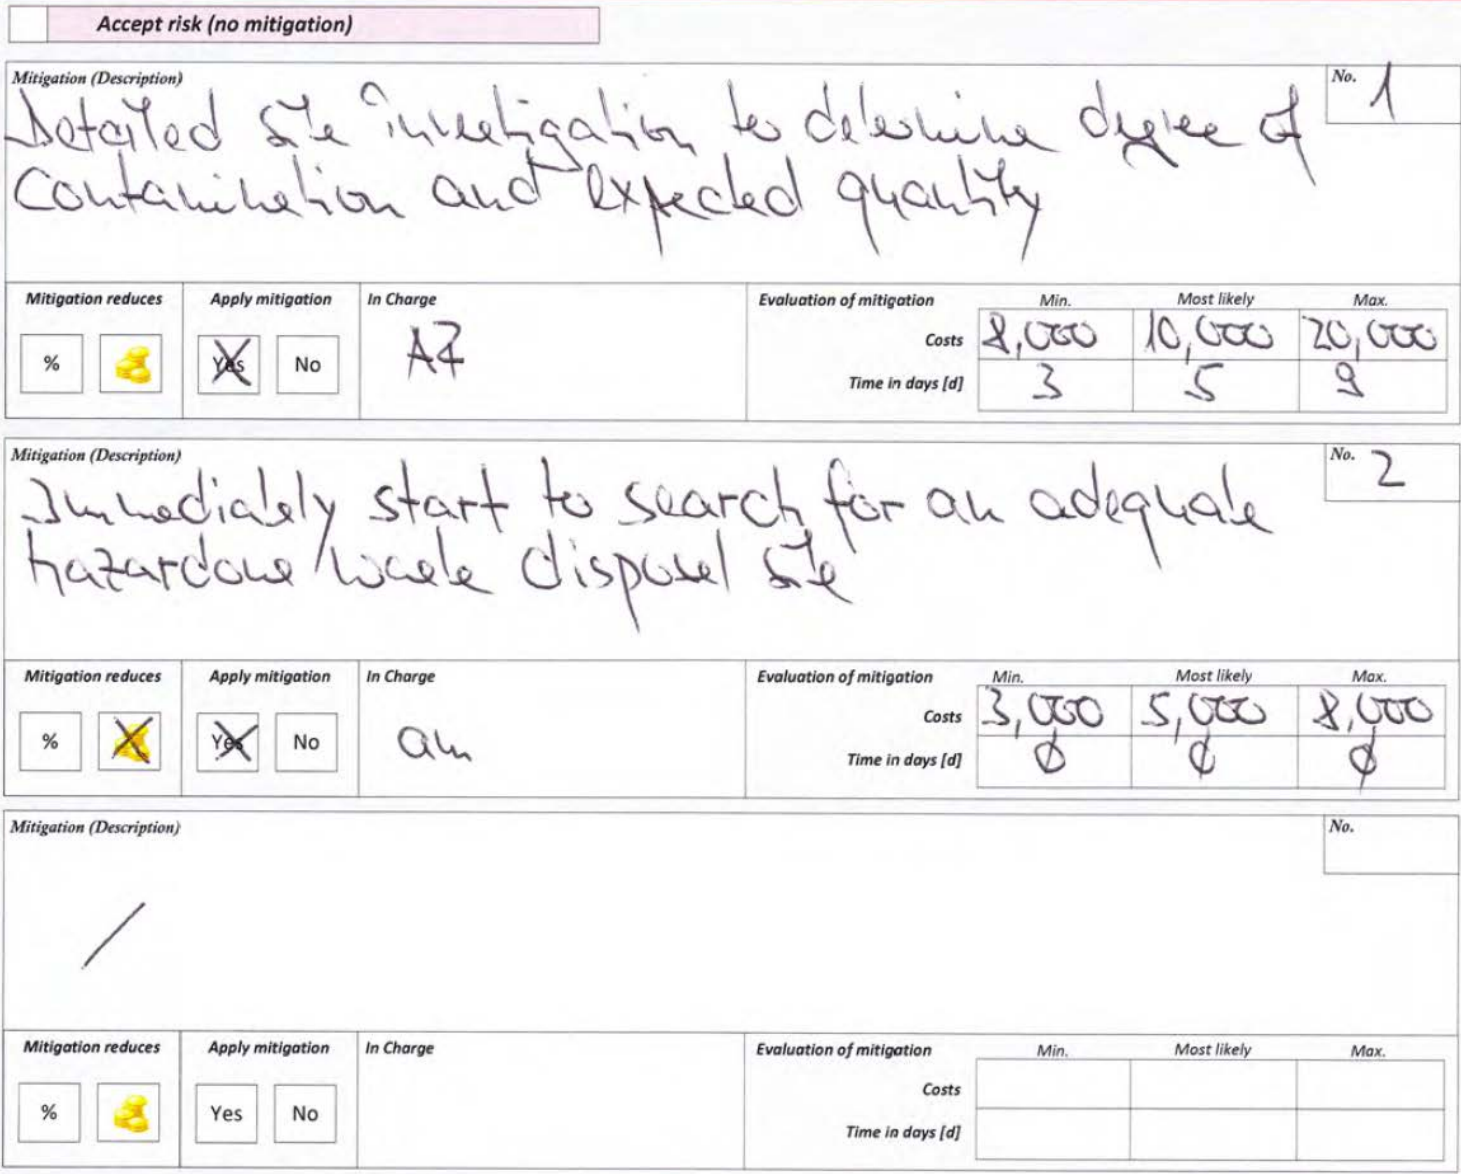 Accept risk (no mitigation)
Mitigation (Description)
No. 1
Detailed site investigation to determine degree of
contamination and expected quantity
Mitigation reduces Apply mitigation In Charge Evaluation of mitigation Min. Most likely Max.
Costs 8,000 10,000 20,000
% Yes No AZ
Time in days [d] 3 5 9
Mitigation (Description)
No. 2
Immediately start to search for an adequate
hazardous waste disposal site
Mitigation reduces Apply mitigation In Charge Evaluation of mitigation Min. Most likely Max.
Costs 3,000 5,000 8,000
% Yes No
Time in days [d] 0 0 0
Mitigation (Description)
No.
/
Mitigation reduces Apply mitigation In Charge Evaluation of mitigation Min. Most likely Max.
Costs
% Yes No
Time in days [d]